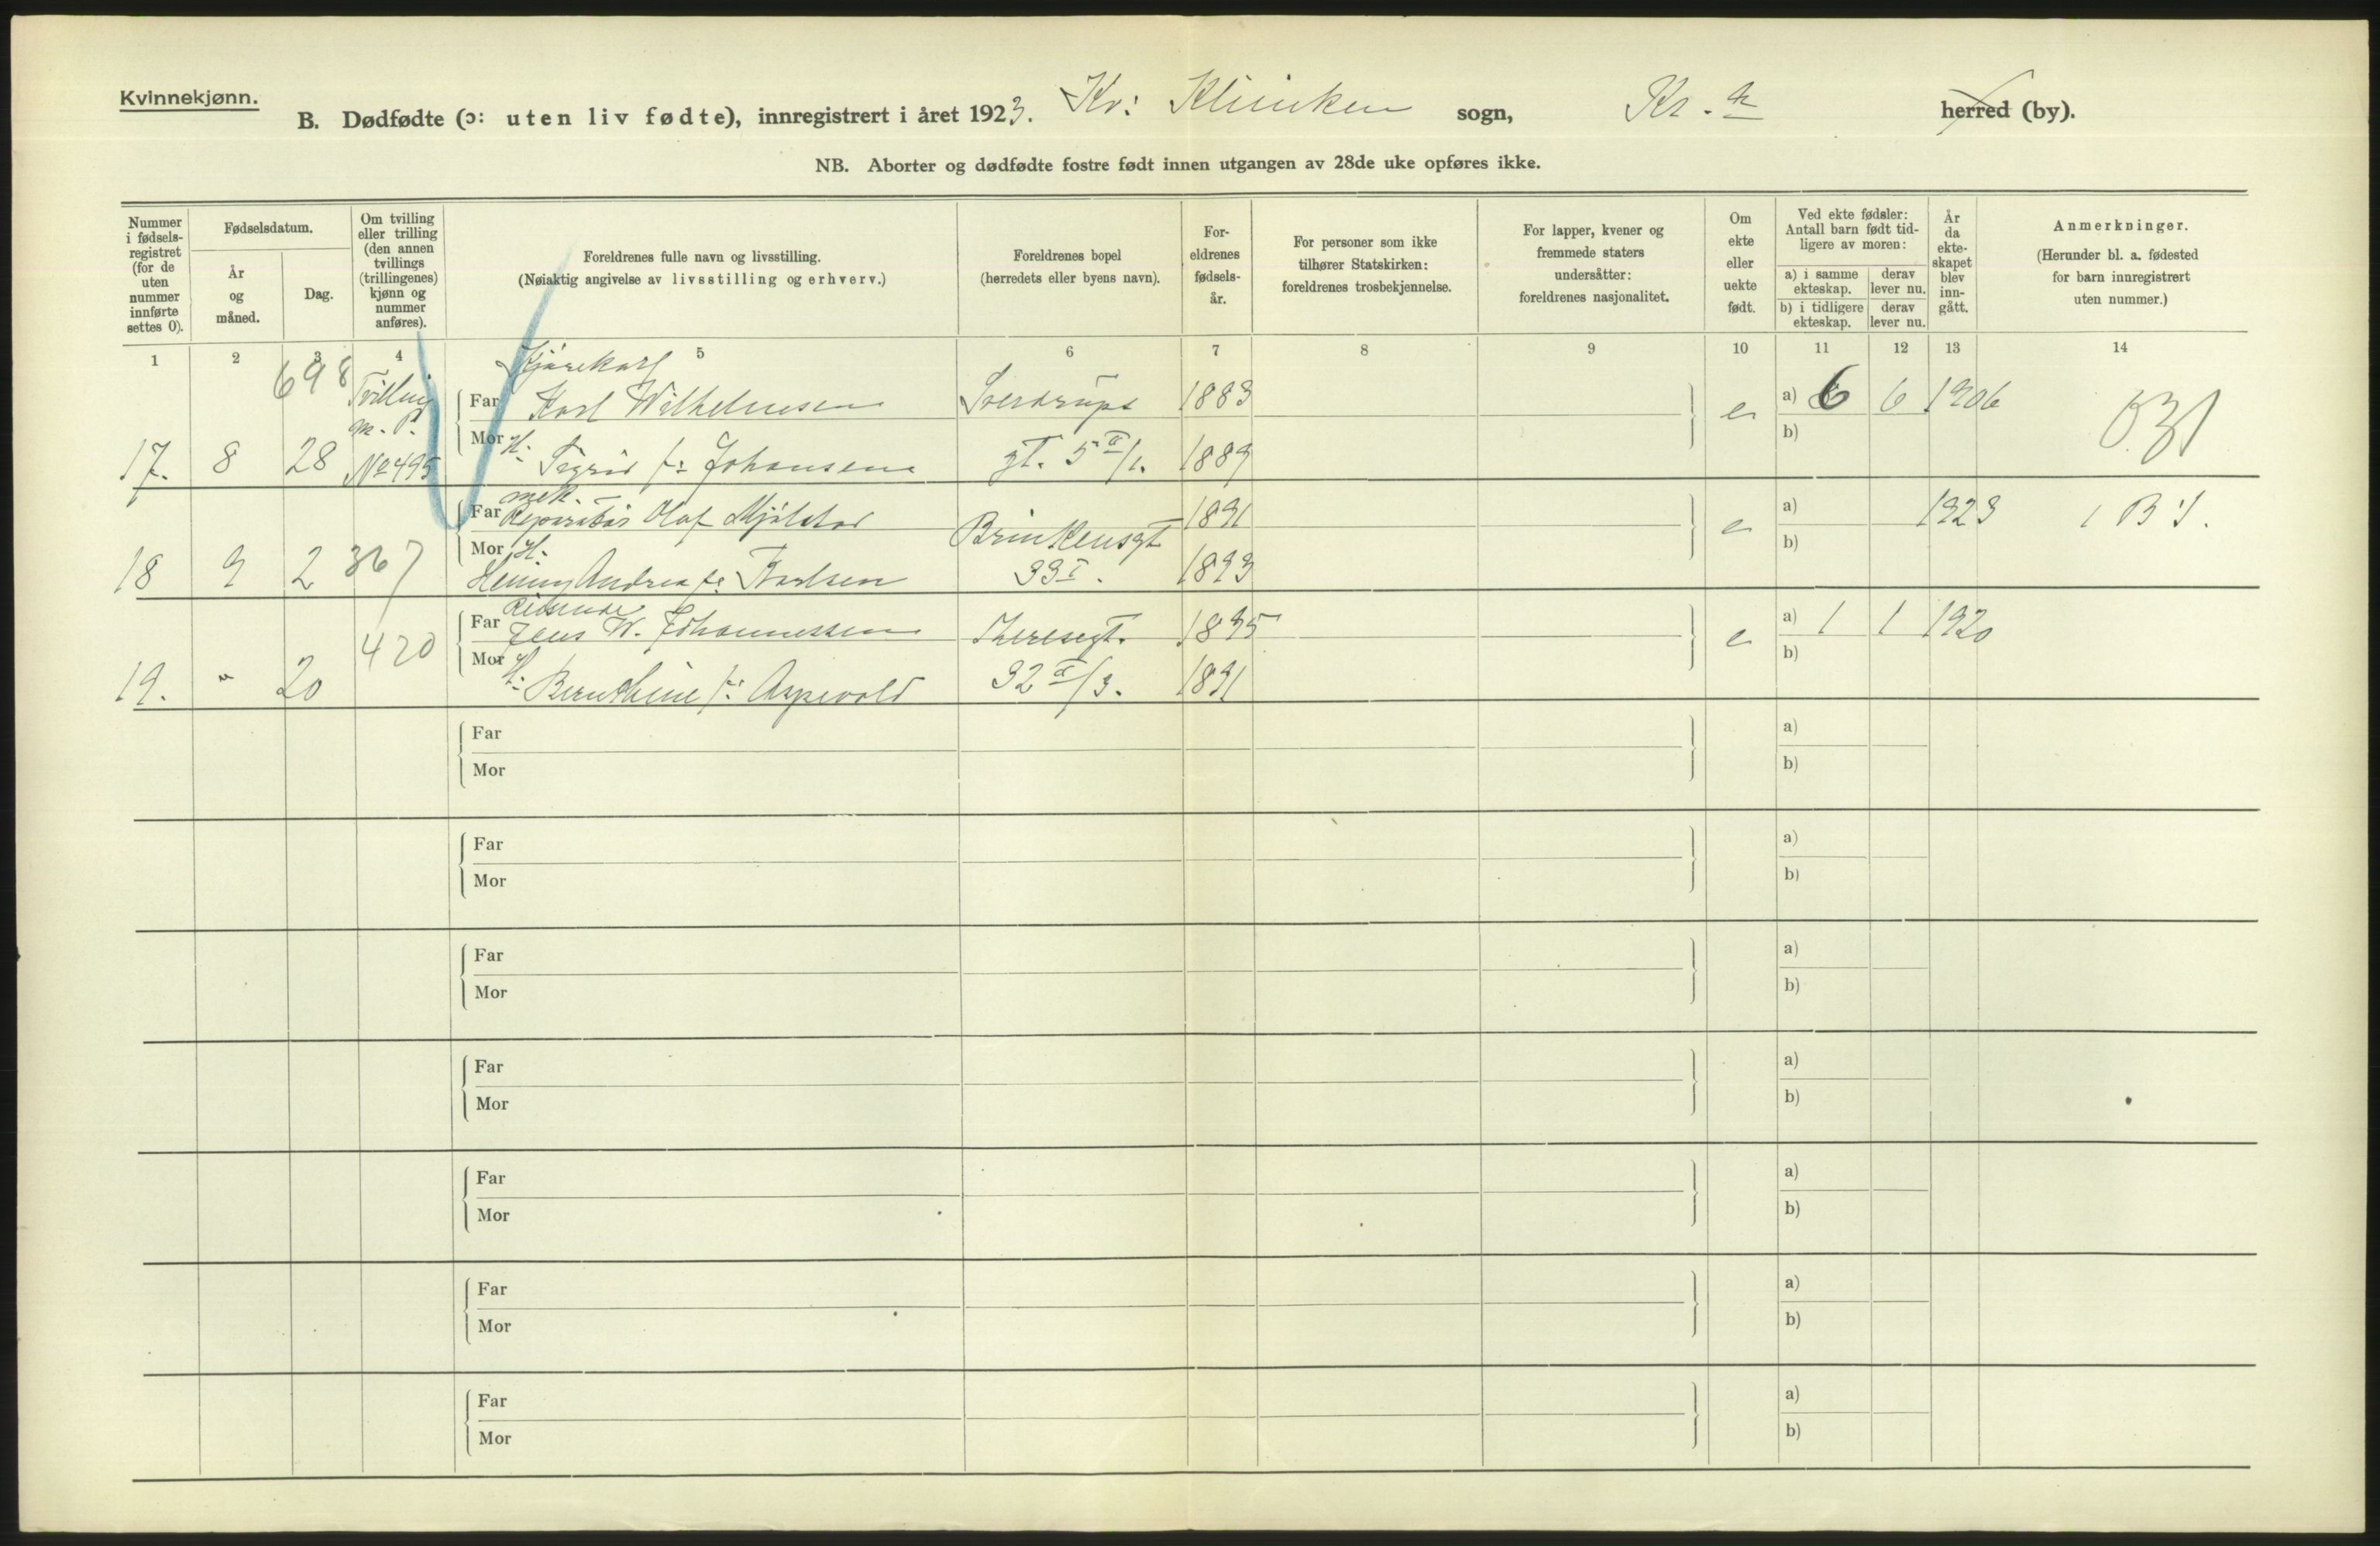 Kvinnekjønn.
B. Dødfødte (ɔ: uten liv fødte), innregistrert i året 1923. Kv: Kliniken sogn, Kr.a herred (by).
NB. Aborter og dødfødte fostre født innen utgangen av 28de uke opføres ikke.
Nummer i fødsels-registret (for de uten nummer innførte settes 0).
Fødselsdatum.
År og måned.
Dag.
Om tvilling eller trilling (den annen tvillings (trillingenes) kjønn og nummer anføres).
Foreldrenes fulle navn og livsstilling.
(Nøiaktig angivelse av livsstilling og erhverv.)
Foreldrenes bopel
(herredets eller byens navn).
For-eldrenes fødsels-år.
For personer som ikke tilhører Statskirken: foreldrenes trosbekjennelse.
For lapper, kvener og fremmede staters undersåtter: foreldrenes nasjonalitet.
Om ekte eller uekte født.
Ved ekte fødsler: Antall barn født tid-ligere av moren:
a) i samme ekteskap. derav lever nu.
b) i tidligere ekteskap. derav lever nu.
År da ekte-skapet blev inn-gått.
Anmerkninger.
(Herunder bl. a. fødested for barn innregistrert uten nummer.)
1 2 3 4 5 6 7 8 9 10 11 12 13 14
698 Tvilling Kjørekarl
m. P. Far Karl Wilhelmsen Sverdrups 1883 e a) 6 6 1906
17. 8 28 No 495 Mor H: Sigrid f: Johansen gt. 5 II/1. 1889 b)
mek.
Far Reparatør Olaf Mjølstad Brinkensgt 1891 e a) 1923 1 B 1.
18 9 2 367 Mor H: Henny Andrea f: Karlsen 33 I. 1893 b)
Reisende
420 Far Jens W. Johannessen Theresegt. 1895 e a) 1 1 1920
19. " 20 Mor H: Bernthine f: Aspevold 32 II/3. 1891 b)
Far a)
Mor b)
Far a)
Mor b)
Far a)
Mor b)
Far a)
Mor b)
Far a)
Mor b)
Far a)
Mor b)
Far a)
Mor b)